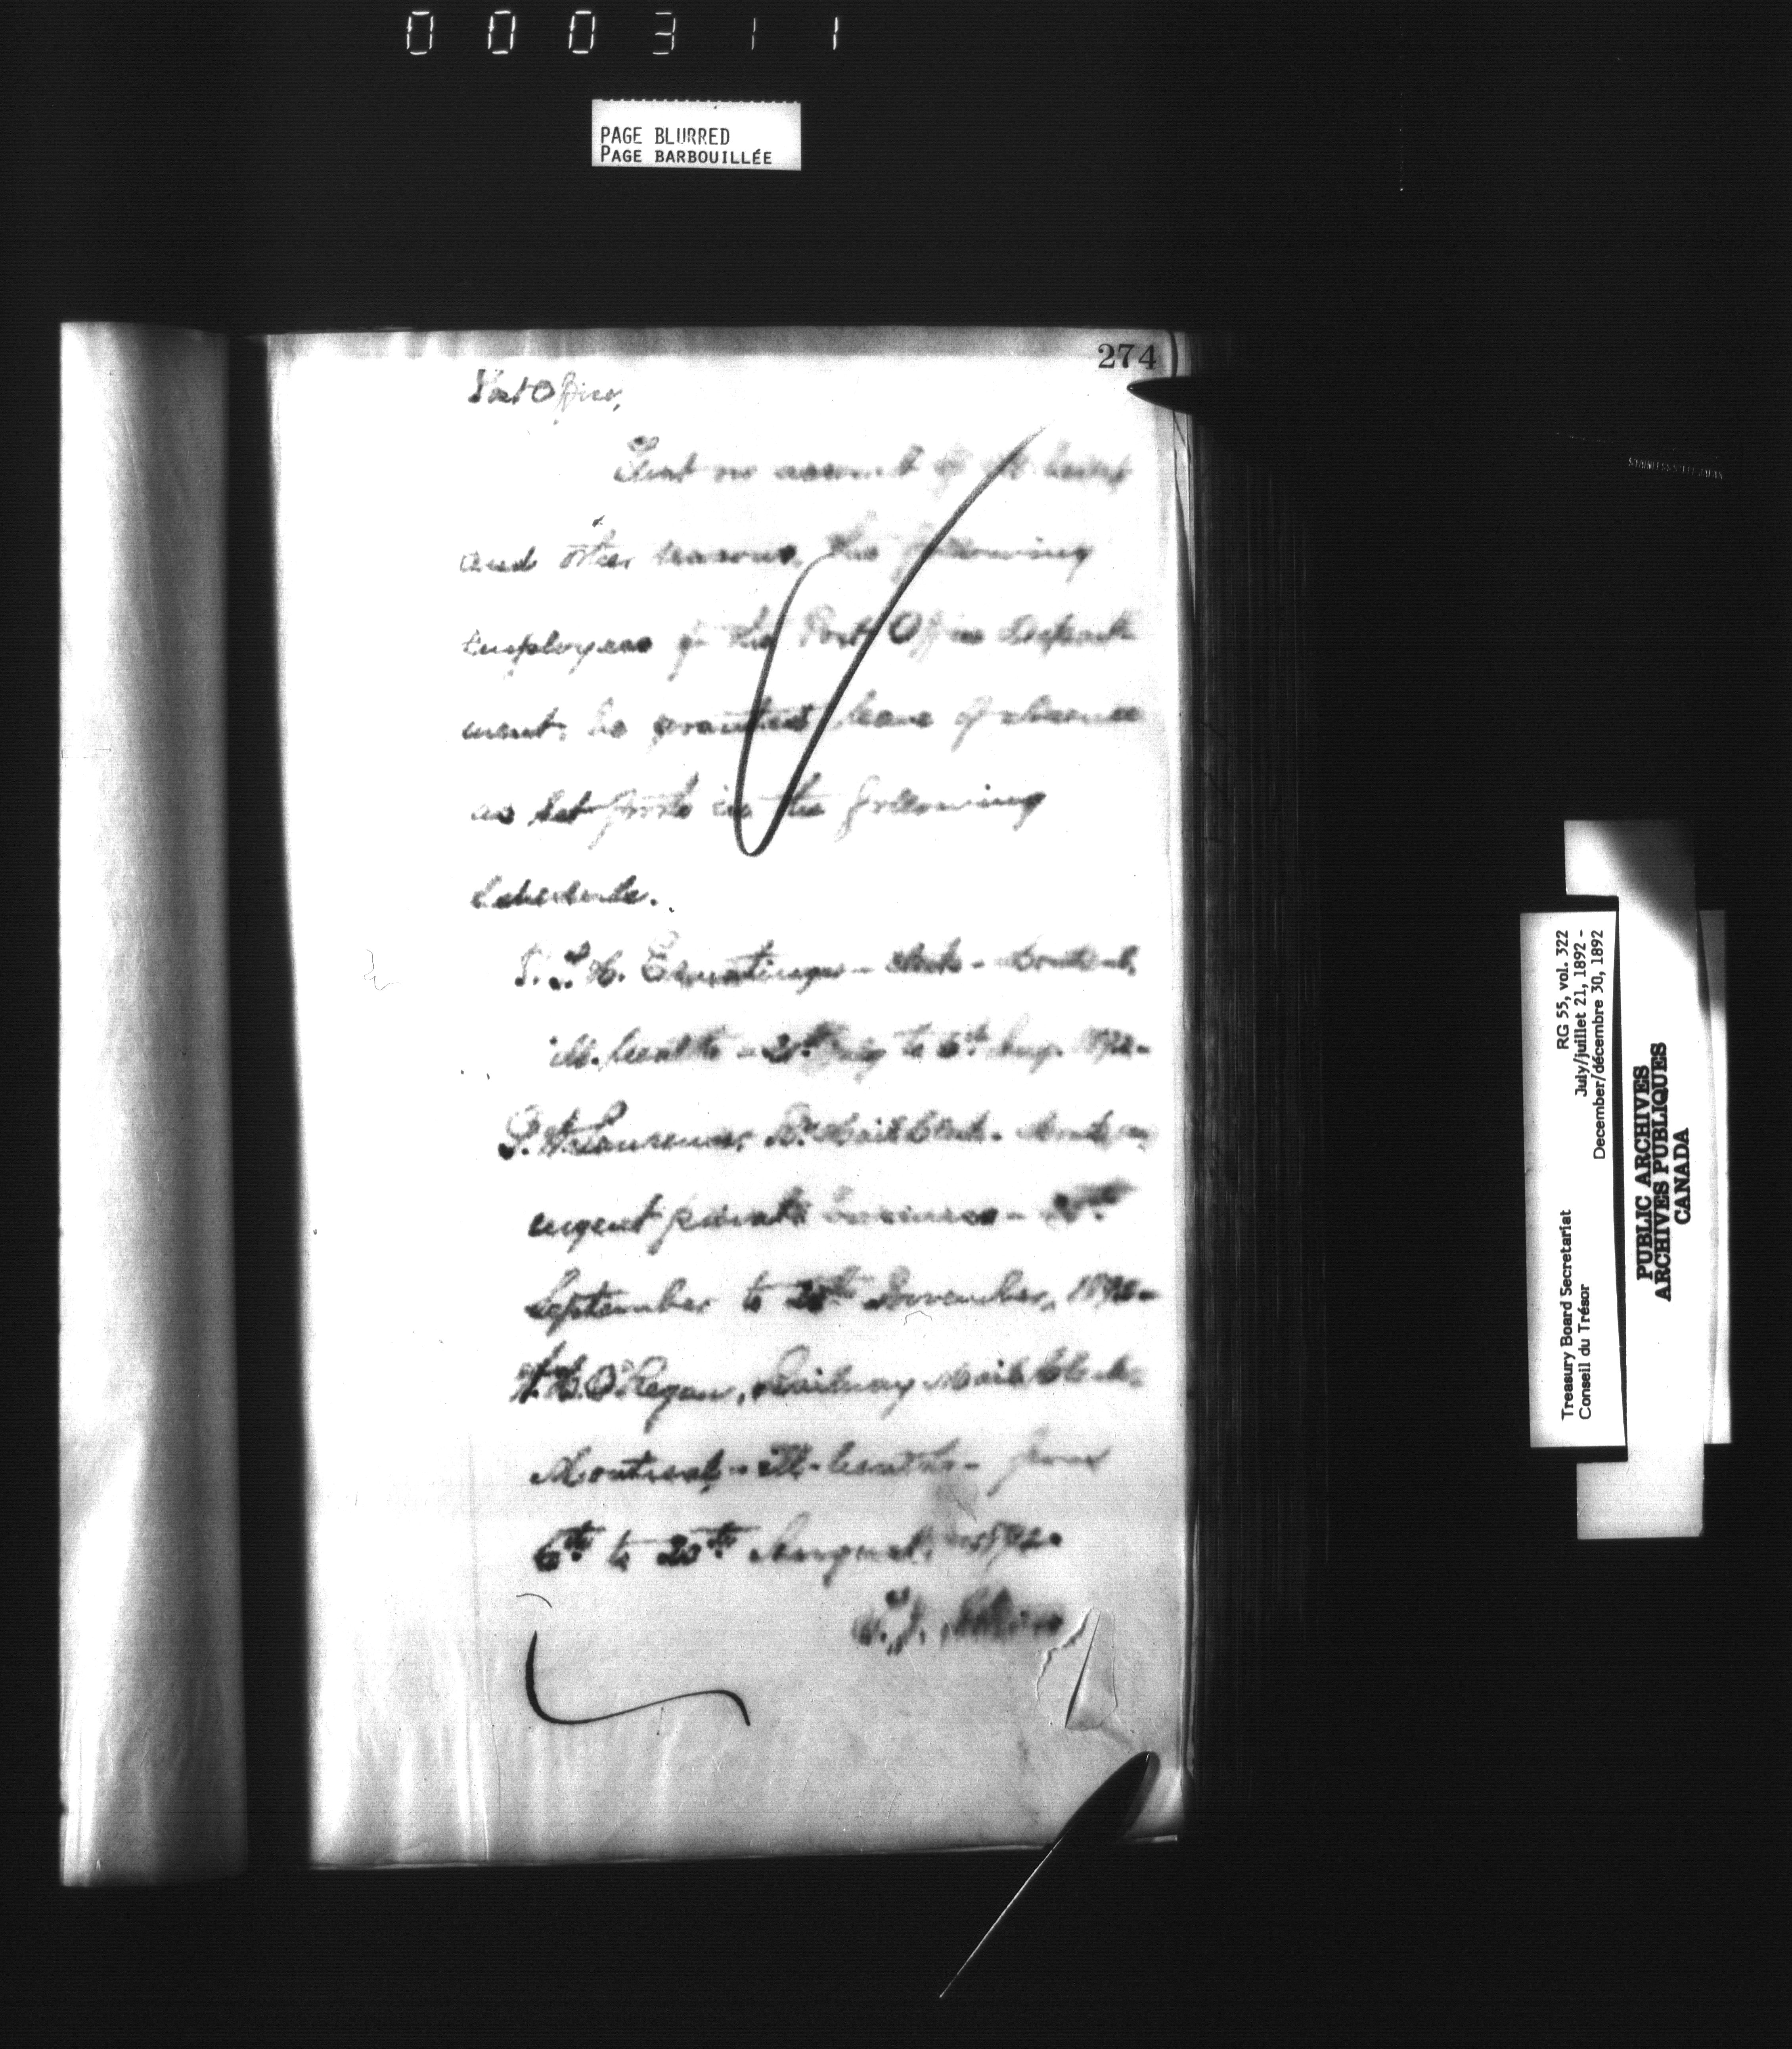 000311
PAGE BLURRED
PAGE BARBOUILLÉE
274
Post Office,
That on account of ill health
and other reasons, the following
employees of the Post Office Depart-
ment, be granted leave of absence
as set forth in the following
schedule.
Ermatinger - Clerk - Montreal,
ill-health - to 6th Aug. 1892 -
Lawrence, Ry Mail Clerk -
urgent private business -
September to November, 1892 -
O'Regan, Railway Mail Clerk -
Montreal - ill-health - from
6th to 20th August, 1892.
RG 55, vol. 322
July/juillet 21, 1892 -
December/décembre 30, 1892
Treasury Board Secretariat
Conseil du Trésor
PUBLIC ARCHIVES
ARCHIVES PUBLIQUES
CANADA